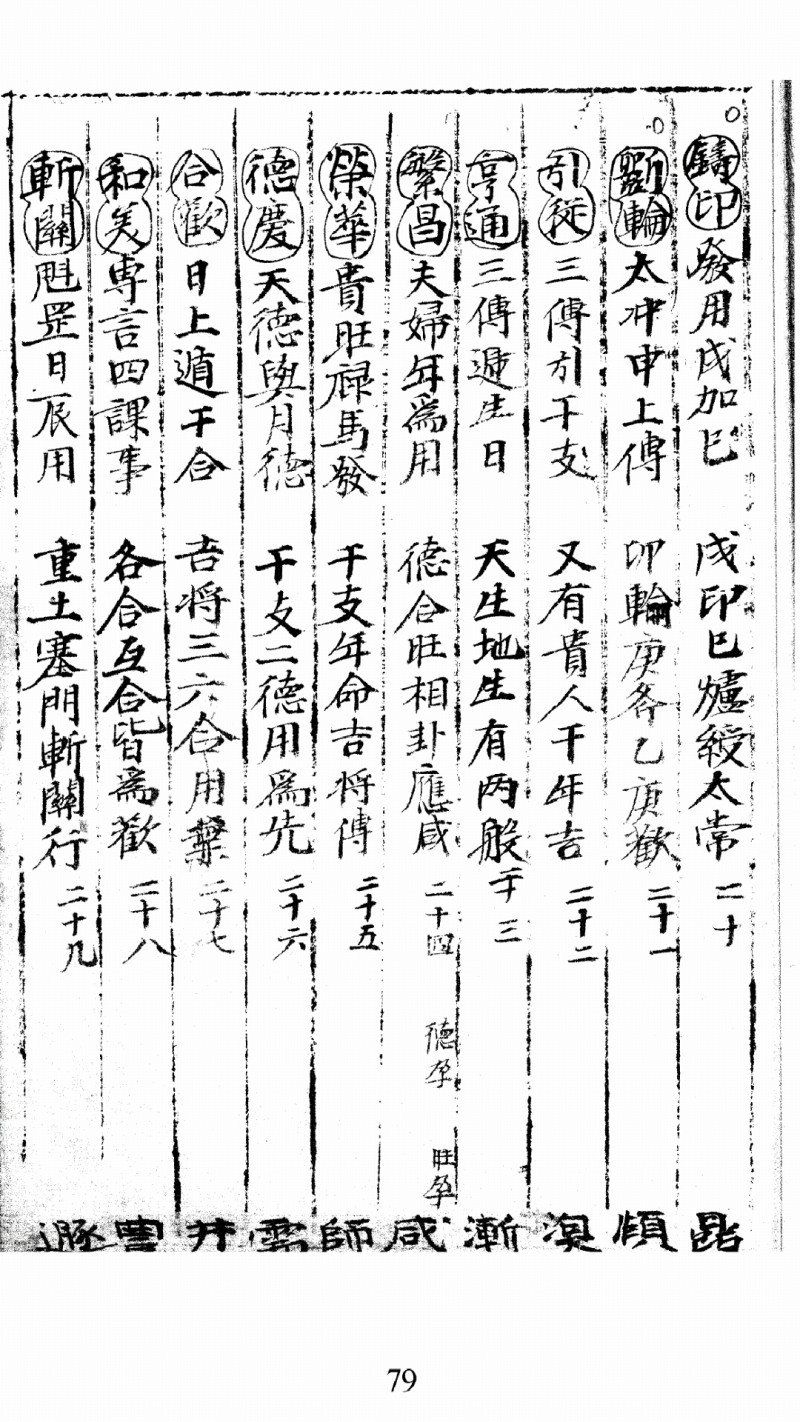 鑄印發用戌加巳 戌印巳爐綬太常 二十 鼎
斲輪太冲申上傳 卯輪庚斧乙庚歡 二十一 頤
引從三傳引干支 又有貴人干年吉 二十二 渙
亨通三傳遞生日 天生地生有两般 二十三 漸
繁昌夫婦年為用 德合旺相卦應咸 二十四 德孕 旺孕 咸
榮華貴旺祿馬發 干支年命吉将傳 二十五 師
德慶天德與月德 干支二德用為先 二十六 需
合歡日上遁干合 吉将三六合用 二十七 井
和美專言四課事 各合互合皆為歡 二十八 豐
斬關魁罡日辰用 重土塞門斬關行 二十九 遯
79